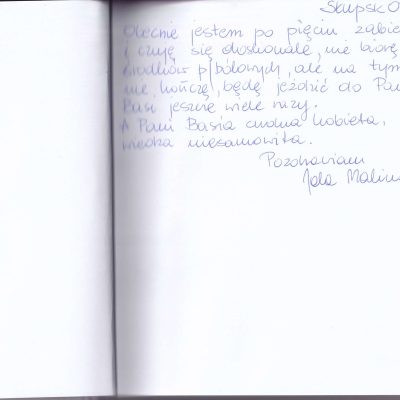 Słupsk 0
Obecnie jestem po pięciu zabie
i czuję się doskonale, nie biorę
środków p/bólowych, ale na tym
nie kończę, będę jeździć do Pan
Basi jeszcze wiele razy.
A Pani Basia cudna kobieta,
wiedza niesamowita.
Pozdrawiam
Jola Malin